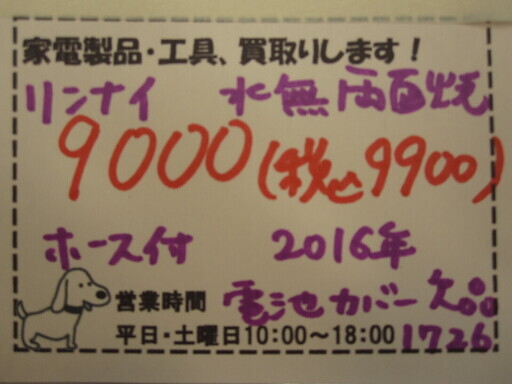 家電製品・工具、買取りします!
リンナイ 水無両面焼
9000(税込9900)
ホース付 2016年
営業時間 電池カバー欠品
平日・土曜日10:00～18:00 1726